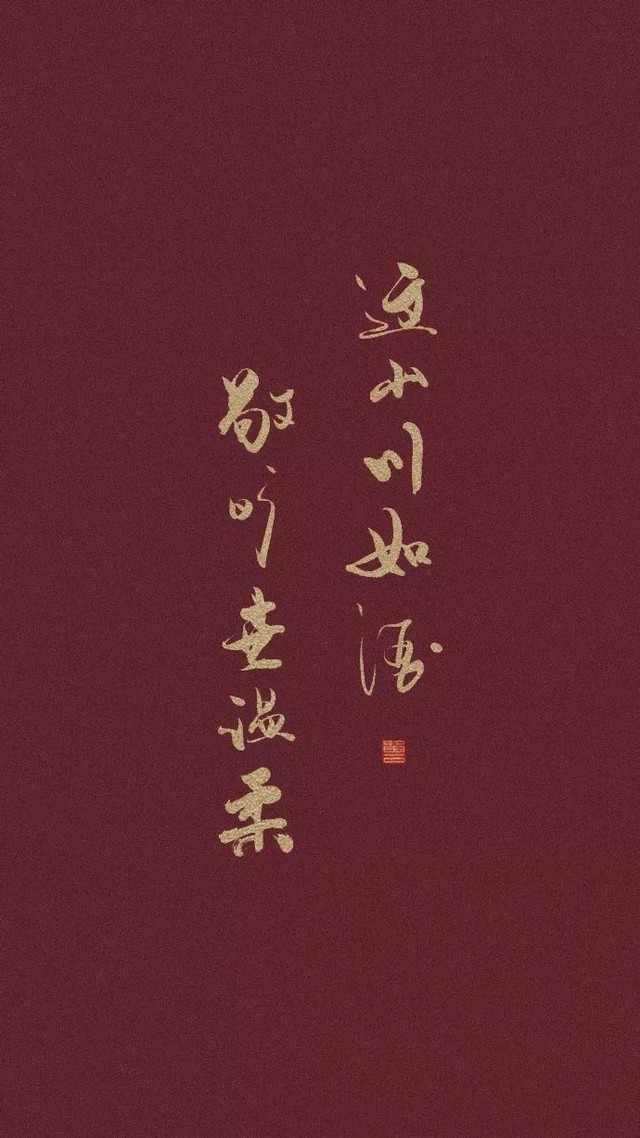 这山川如酒
敬温柔